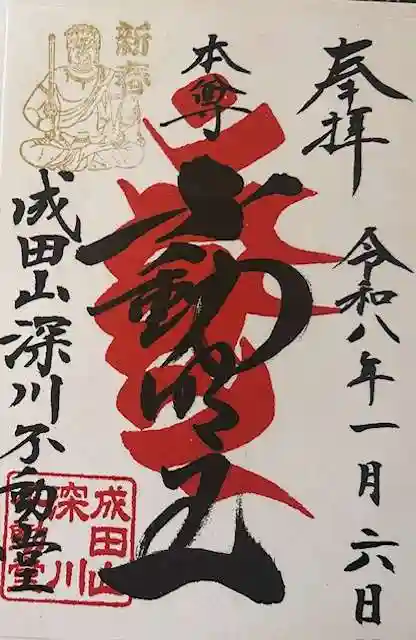 奉拝
令和八年一月六日
本尊
不動明王
新春
成田山深川不動堂
成田山
深川
不動堂